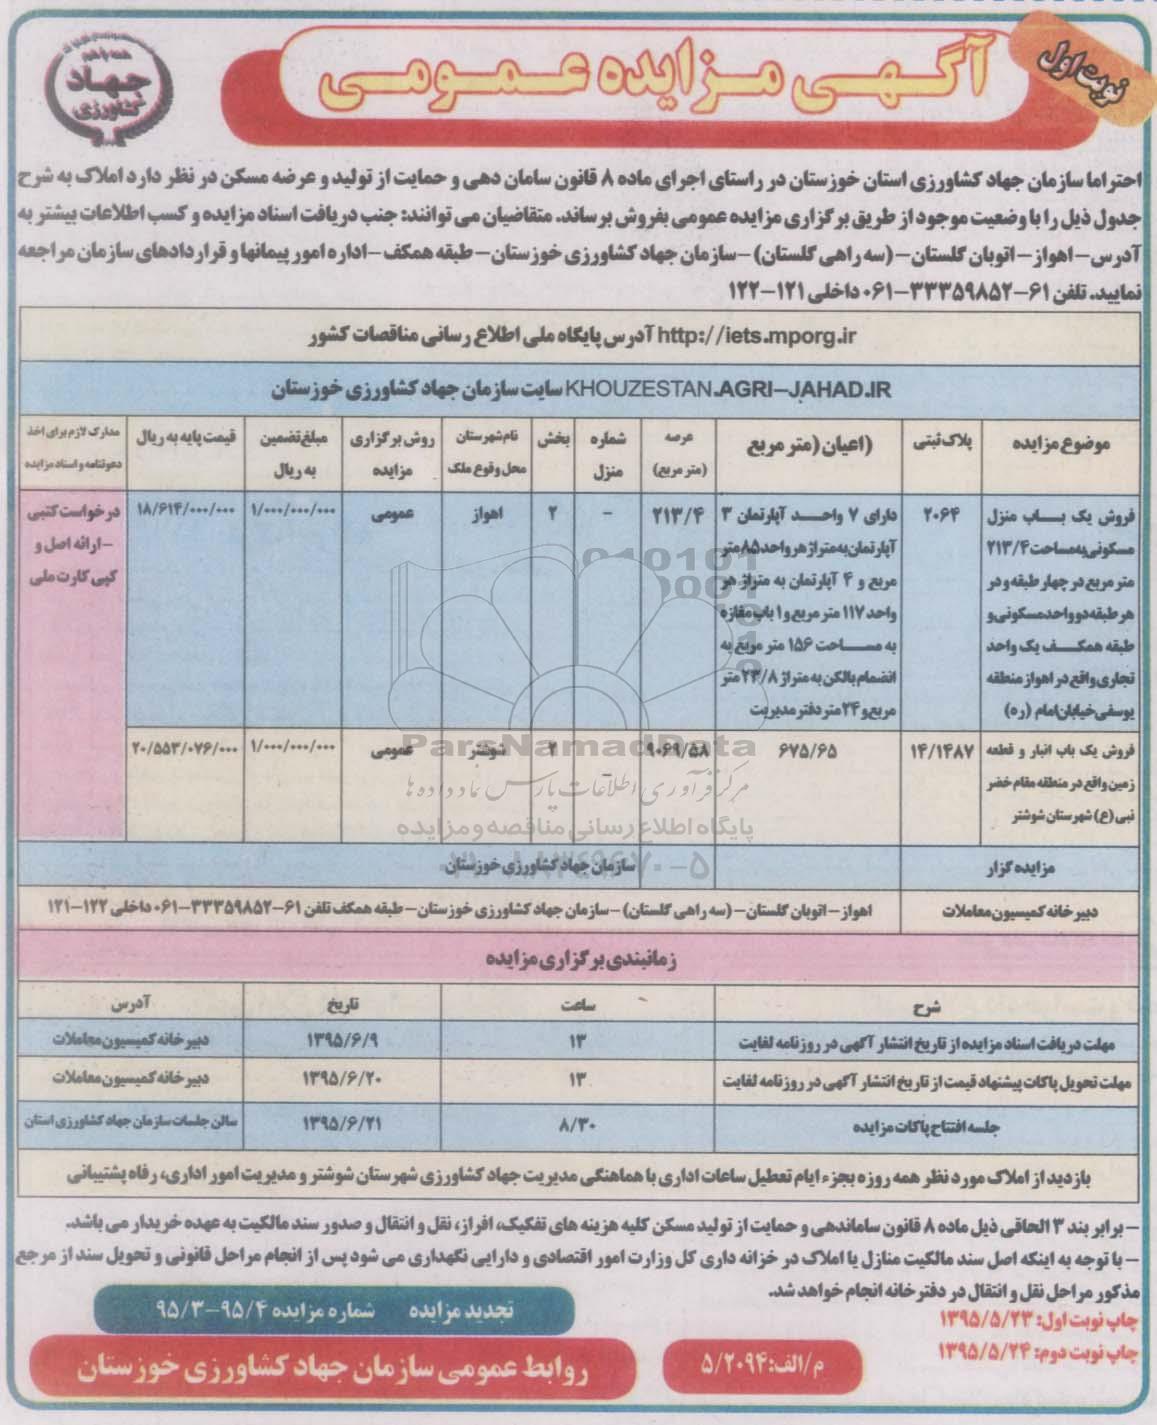 نوبت اول
آگهی مزایده عمومی
همه با هم
جهاد
کشاورزی
احتراما سازمان جهاد کشاورزی استان خوزستان در راستای اجرای ماده ۸ قانون سامان دهی و حمایت از تولید و عرضه مسکن در نظر دارد املاک به شرح
جدول ذیل را با وضعیت موجود از طریق برگزاری مزایده عمومی بفروش برساند. متقاضیان می توانند: جنب دریافت اسناد مزایده و کسب اطلاعات بیشتر به
آدرس- اهواز - اتوبان گلستان- (سه راهی گلستان) - سازمان جهاد کشاورزی خوزستان- طبقه همکف - اداره امور پیمانها و قراردادهای سازمان مراجعه
نمایید. تلفن ۶۱-۳۳۳۵۹۸۵۲-۰۶۱ داخلی ۱۲۱-۱۲۲
http://iets.mporg.ir آدرس پایگاه ملی اطلاع رسانی مناقصات کشور
KHOUZESTAN.AGRI-JAHAD.IR سایت سازمان جهاد کشاورزی خوزستان
موضوع مزایده
پلاک ثبتی
(اعیان (متر مربع
عرصه
(متر مربع)
شماره
منزل
بخش
نام شهرستان
محل وقوع ملک
روش برگزاری
مزایده
مبلغ تضمین
به ریال
قیمت پایه به ریال
مدارک لازم برای اخذ
دعوتنامه و اسناد مزایده
فروش یک باب منزل
مسکونی به مساحت ۲۱۳/۴
متر مربع در چهار طبقه و در
هر طبقه دو واحد مسکونی و
طبقه همکف یک واحد
تجاری واقع در اهواز منطقه
یوسفی خیابان امام (ره)
۲۰۶۴
دارای ۷ واحد آپارتمان ۳
آپارتمان به متراژ هر واحد ۸۵ متر
مربع و ۴ آپارتمان به متراژ هر
واحد ۱۱۷ متر مربع و ۱ باب مغازه
به مساحت ۱۵۶ متر مربع به
انضمام بالکن به متراژ ۲۳/۸ متر
مربع و ۲۴ متر دفتر مدیریت
۲۱۳/۴
-
۲
اهواز
عمومی
۱/۰۰۰/۰۰۰/۰۰۰
۱۸/۶۱۴/۰۰۰/۰۰۰
درخواست کتبی
-ارائه اصل و
کپی کارت ملی
فروش یک باب انبار و قطعه
زمین واقع در منطقه مقام خضر
نبی (ع) شهرستان شوشتر
۱۴/۱۴۸۷
۶۷۵/۶۵
۹۰۶۹/۵۸
-
۲
شوشتر
عمومی
۱/۰۰۰/۰۰۰/۰۰۰
۲۰/۵۵۳/۰۷۶/۰۰۰
ParsNamadData
مرکز فرآوری اطلاعات پارس نماد داده ها
پایگاه اطلاع رسانی مناقصه و مزایده
مزایده گزار
سازمان جهاد کشاورزی خوزستان
دبیرخانه کمیسیون معاملات
اهواز - اتوبان گلستان- (سه راهی گلستان) - سازمان جهاد کشاورزی خوزستان- طبقه همکف تلفن ۶۱-۳۳۳۵۹۸۵۲-۰۶۱ داخلی ۱۲۲-۱۲۱
زمانبندی برگزاری مزایده
شرح
ساعت
تاریخ
آدرس
مهلت دریافت اسناد مزایده از تاریخ انتشار آگهی در روزنامه لغایت
۱۳
۱۳۹۵/۶/۹
دبیرخانه کمیسیون معاملات
مهلت تحویل پاکات پیشنهاد قیمت از تاریخ انتشار آگهی در روزنامه لغایت
۱۳
۱۳۹۵/۶/۲۰
دبیرخانه کمیسیون معاملات
جلسه افتتاح پاکات مزایده
۸/۳۰
۱۳۹۵/۶/۲۱
سالن جلسات سازمان جهاد کشاورزی استان
بازدید از املاک مورد نظر همه روزه بجزء ایام تعطیل ساعات اداری با هماهنگی مدیریت جهاد کشاورزی شهرستان شوشتر و مدیریت امور اداری، رفاه پشتیبانی
- برابر بند ۳ الحاقی ذیل ماده ۸ قانون ساماندهی و حمایت از تولید مسکن کلیه هزینه های تفکیک، افراز، نقل و انتقال و صدور سند مالکیت به عهده خریدار می باشد.
- با توجه به اینکه اصل سند مالکیت منازل یا املاک در خزانه داری کل وزارت امور اقتصادی و دارایی نگهداری می شود پس از انجام مراحل قانونی و تحویل سند از مرجع
مذکور مراحل نقل و انتقال در دفترخانه انجام خواهد شد.
چاپ نوبت اول: ۱۳۹۵/۵/۲۳
چاپ نوبت دوم: ۱۳۹۵/۵/۲۴
تجدید مزایده شماره مزایده ۹۵/۴-۹۵/۳
م/الف: ۵/۲۰۹۴
روابط عمومی سازمان جهاد کشاورزی خوزستان